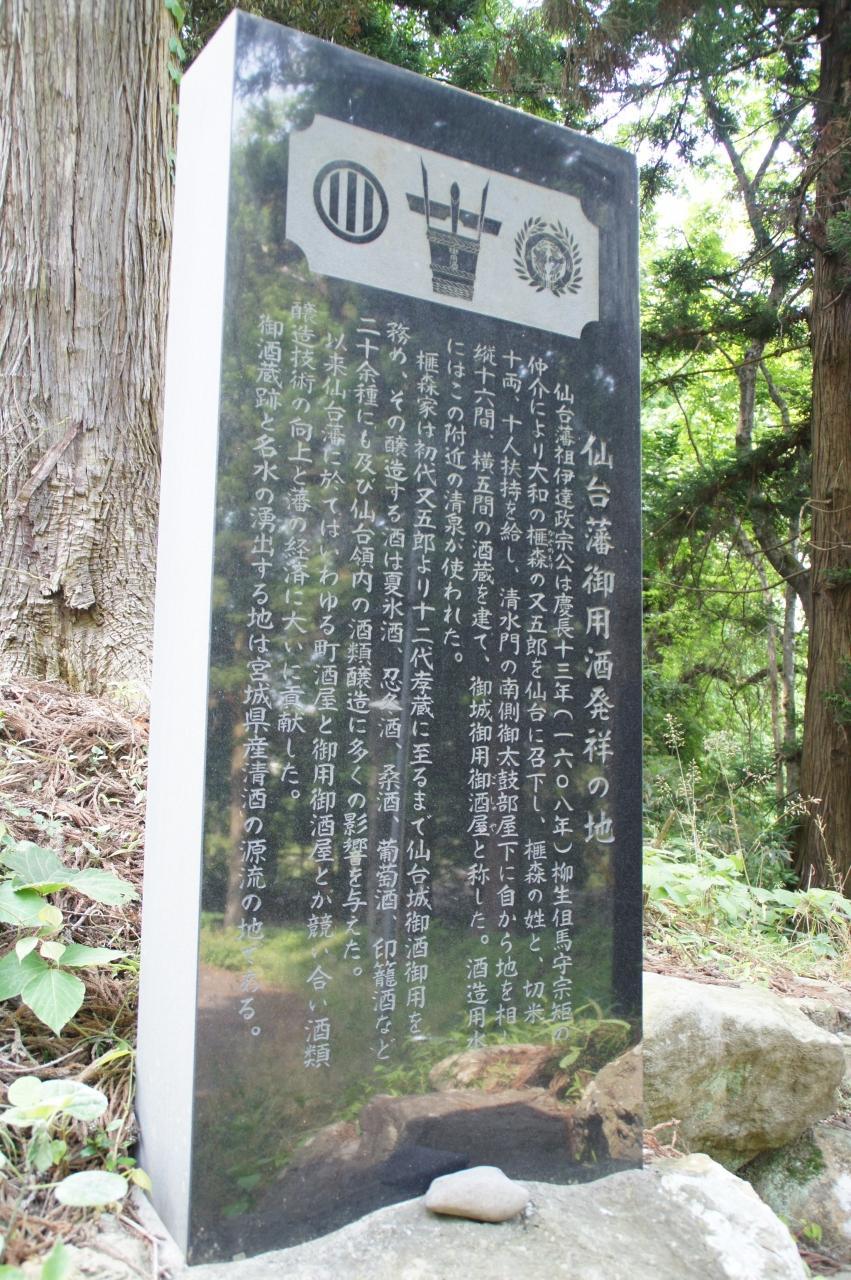 仙台藩御用酒発祥の地
仙台藩祖伊達政宗公は慶長十三年(一六〇八年)柳生但馬守宗矩の
仲介により大和の榧森の又五郎を仙台に召下し、榧森の姓と、切米
十両、十人扶持を給し、清水門の南側御太鼓部屋下に自から地を相
縦十六間、横五間の酒蔵を建て、御城御用御酒屋と称した。酒造用水
にはこの附近の清泉が使われた。
榧森家は初代又五郎より十二代孝蔵に至るまで仙台城御酒御用を
務め、その醸造する酒は夏氷酒、忍冬酒、桑酒、葡萄酒、印籠酒など
二十余種にも及び仙台領内の酒類醸造に多くの影響を与えた。
以来仙台藩に於てはいわゆる町酒屋と御用御酒屋とが競い合い酒類
醸造技術の向上と藩の経済に大いに貢献した。
御酒蔵跡と名水の湧出する地は宮城県産清酒の源流の地である。